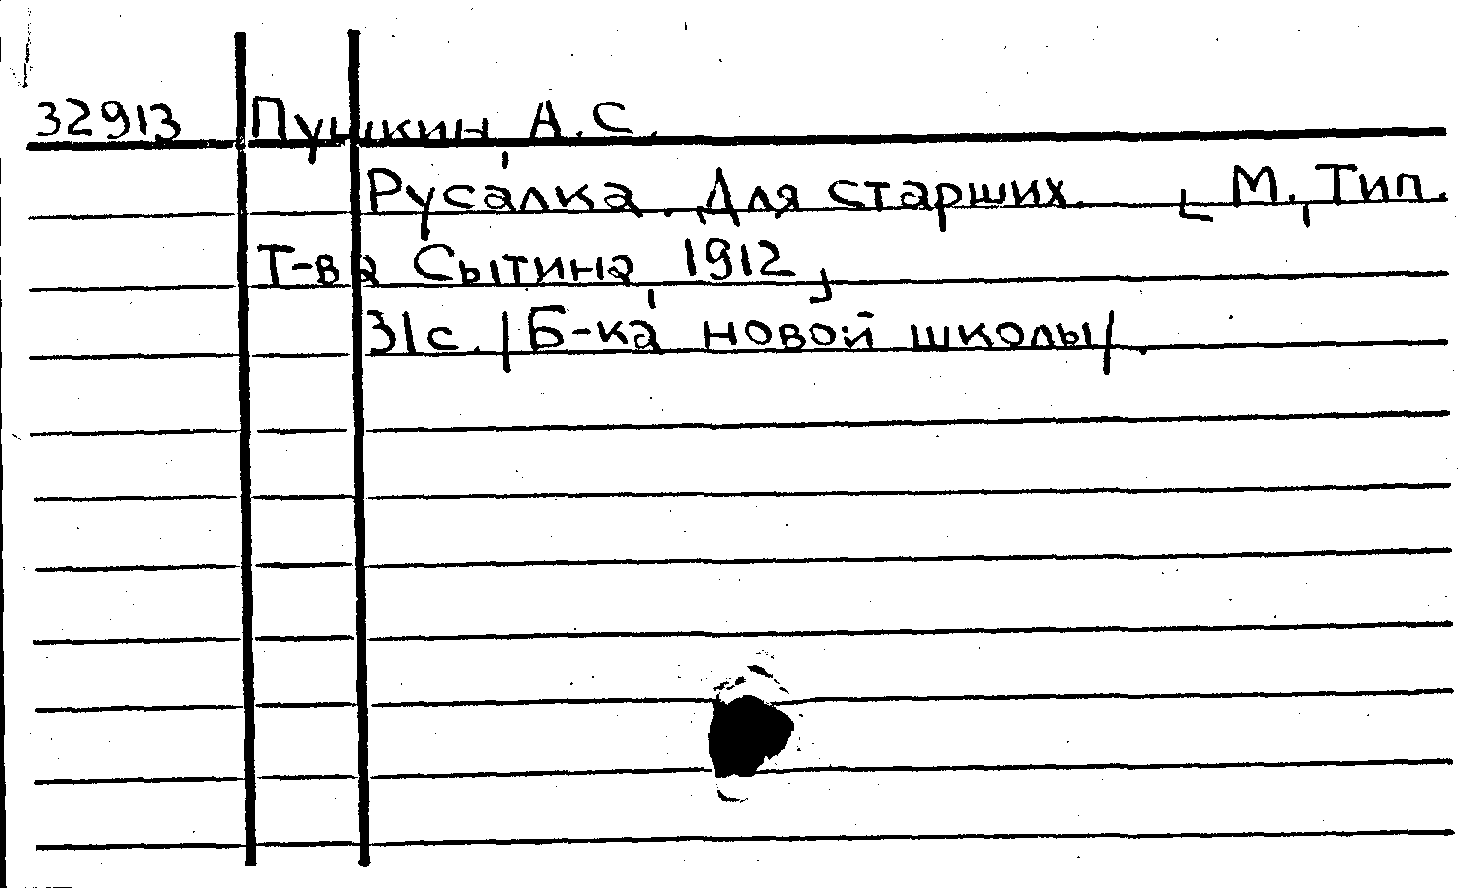 32913 Пушкин, А.С.
Русалка. Для старших. [М., Тип.
Т-ва Сытина, 1912]
31с. /Б-ка новой школы/.